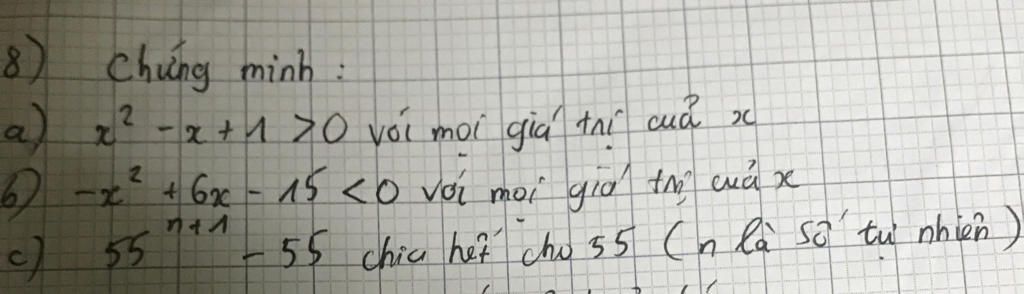 8) Chứng minh :
a) x² - x + 1 > 0 với mọi giá trị cuả x
b) -x² + 6x - 15 < 0 với mọi giá trị cuả x
c) 55ⁿ⁺¹ - 55 chia hết cho 55 (n là số tự nhiên)